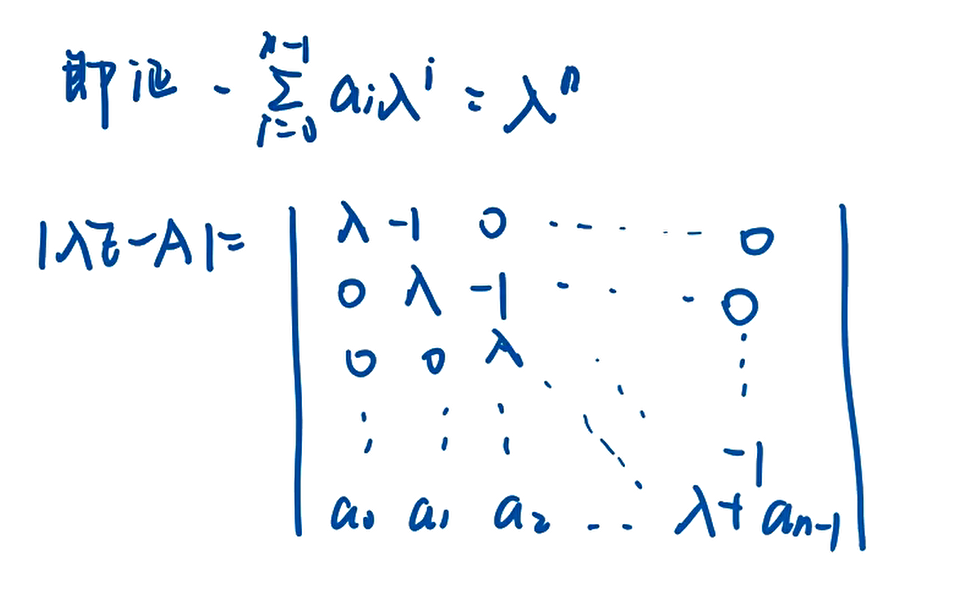 即证 - \sum_{i=0}^{n-1} a_i λ^i = λ^n
|λE-A| =
λ -1 0 ... 0
0 λ -1 ... 0
0 0 λ ⋱ ⋮
⋮ ⋮ ⋮ ⋱ -1
a_0 a_1 a_2 ... λ + a_{n-1}